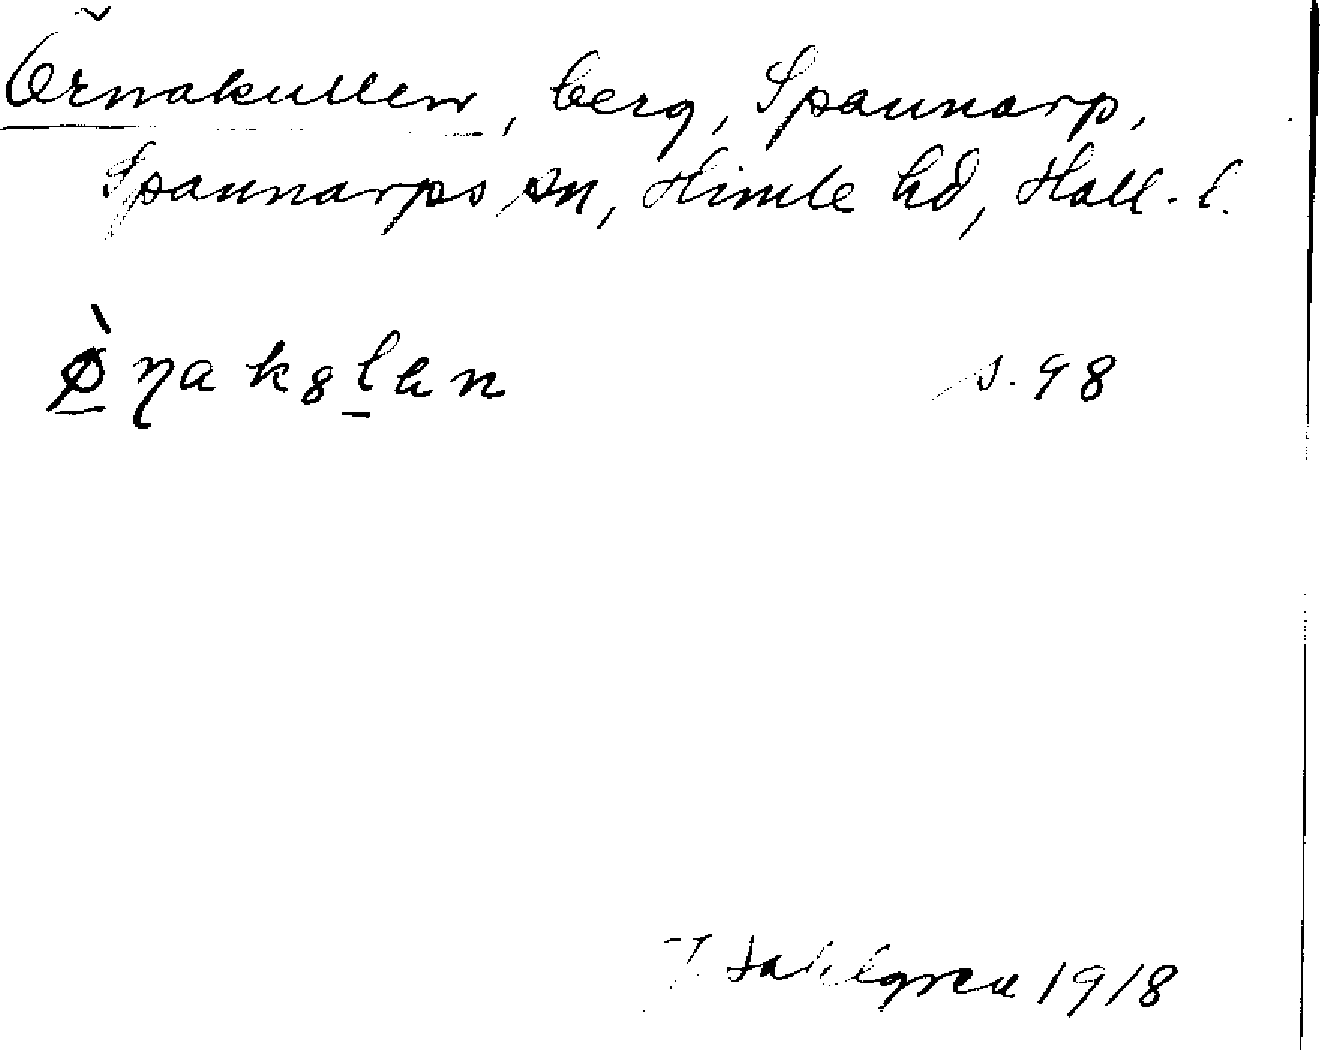 Örnakullen, berg, Spannarp,
Spannarps sn, Himle hd, Hall. l.
s. 98
Dahlgren 1918